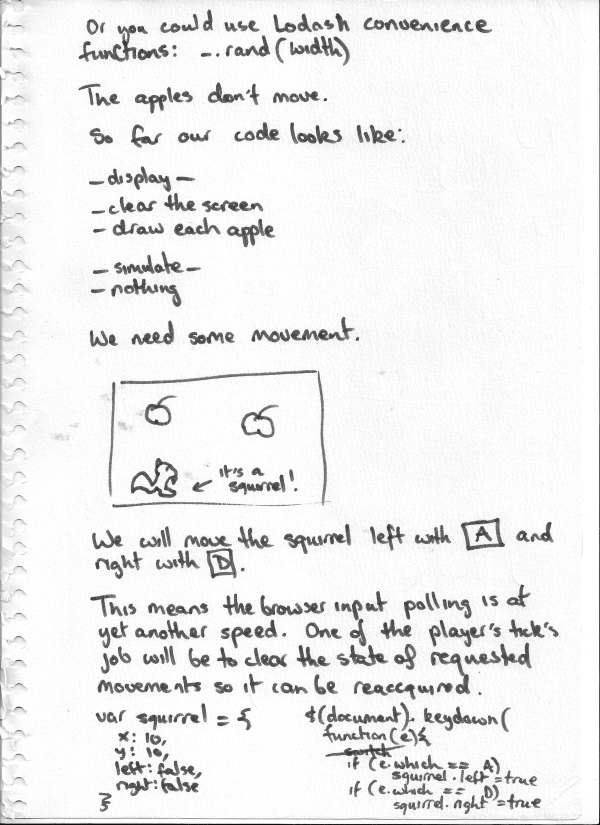 Or you could use Lodash convenience
functions: _.rand(width)
The apples don't move.
So far our code looks like:
- display -
- clear the screen
- draw each apple
- simulate -
- nothing
We need some movement.
it's a
squirrel!
We will move the squirrel left with A and
right with D.
This means the browser input polling is at
yet another speed. One of the player's tick's
job will be to clear the state of requested
movements so it can be reaccquired.
var squirrel = {
x: 10,
y: 10,
left: false,
right: false
}
$(document).keydown(
function(e){
switch
if (e.which == A)
squirrel.left = true
if (e.which == D)
squirrel.right = true